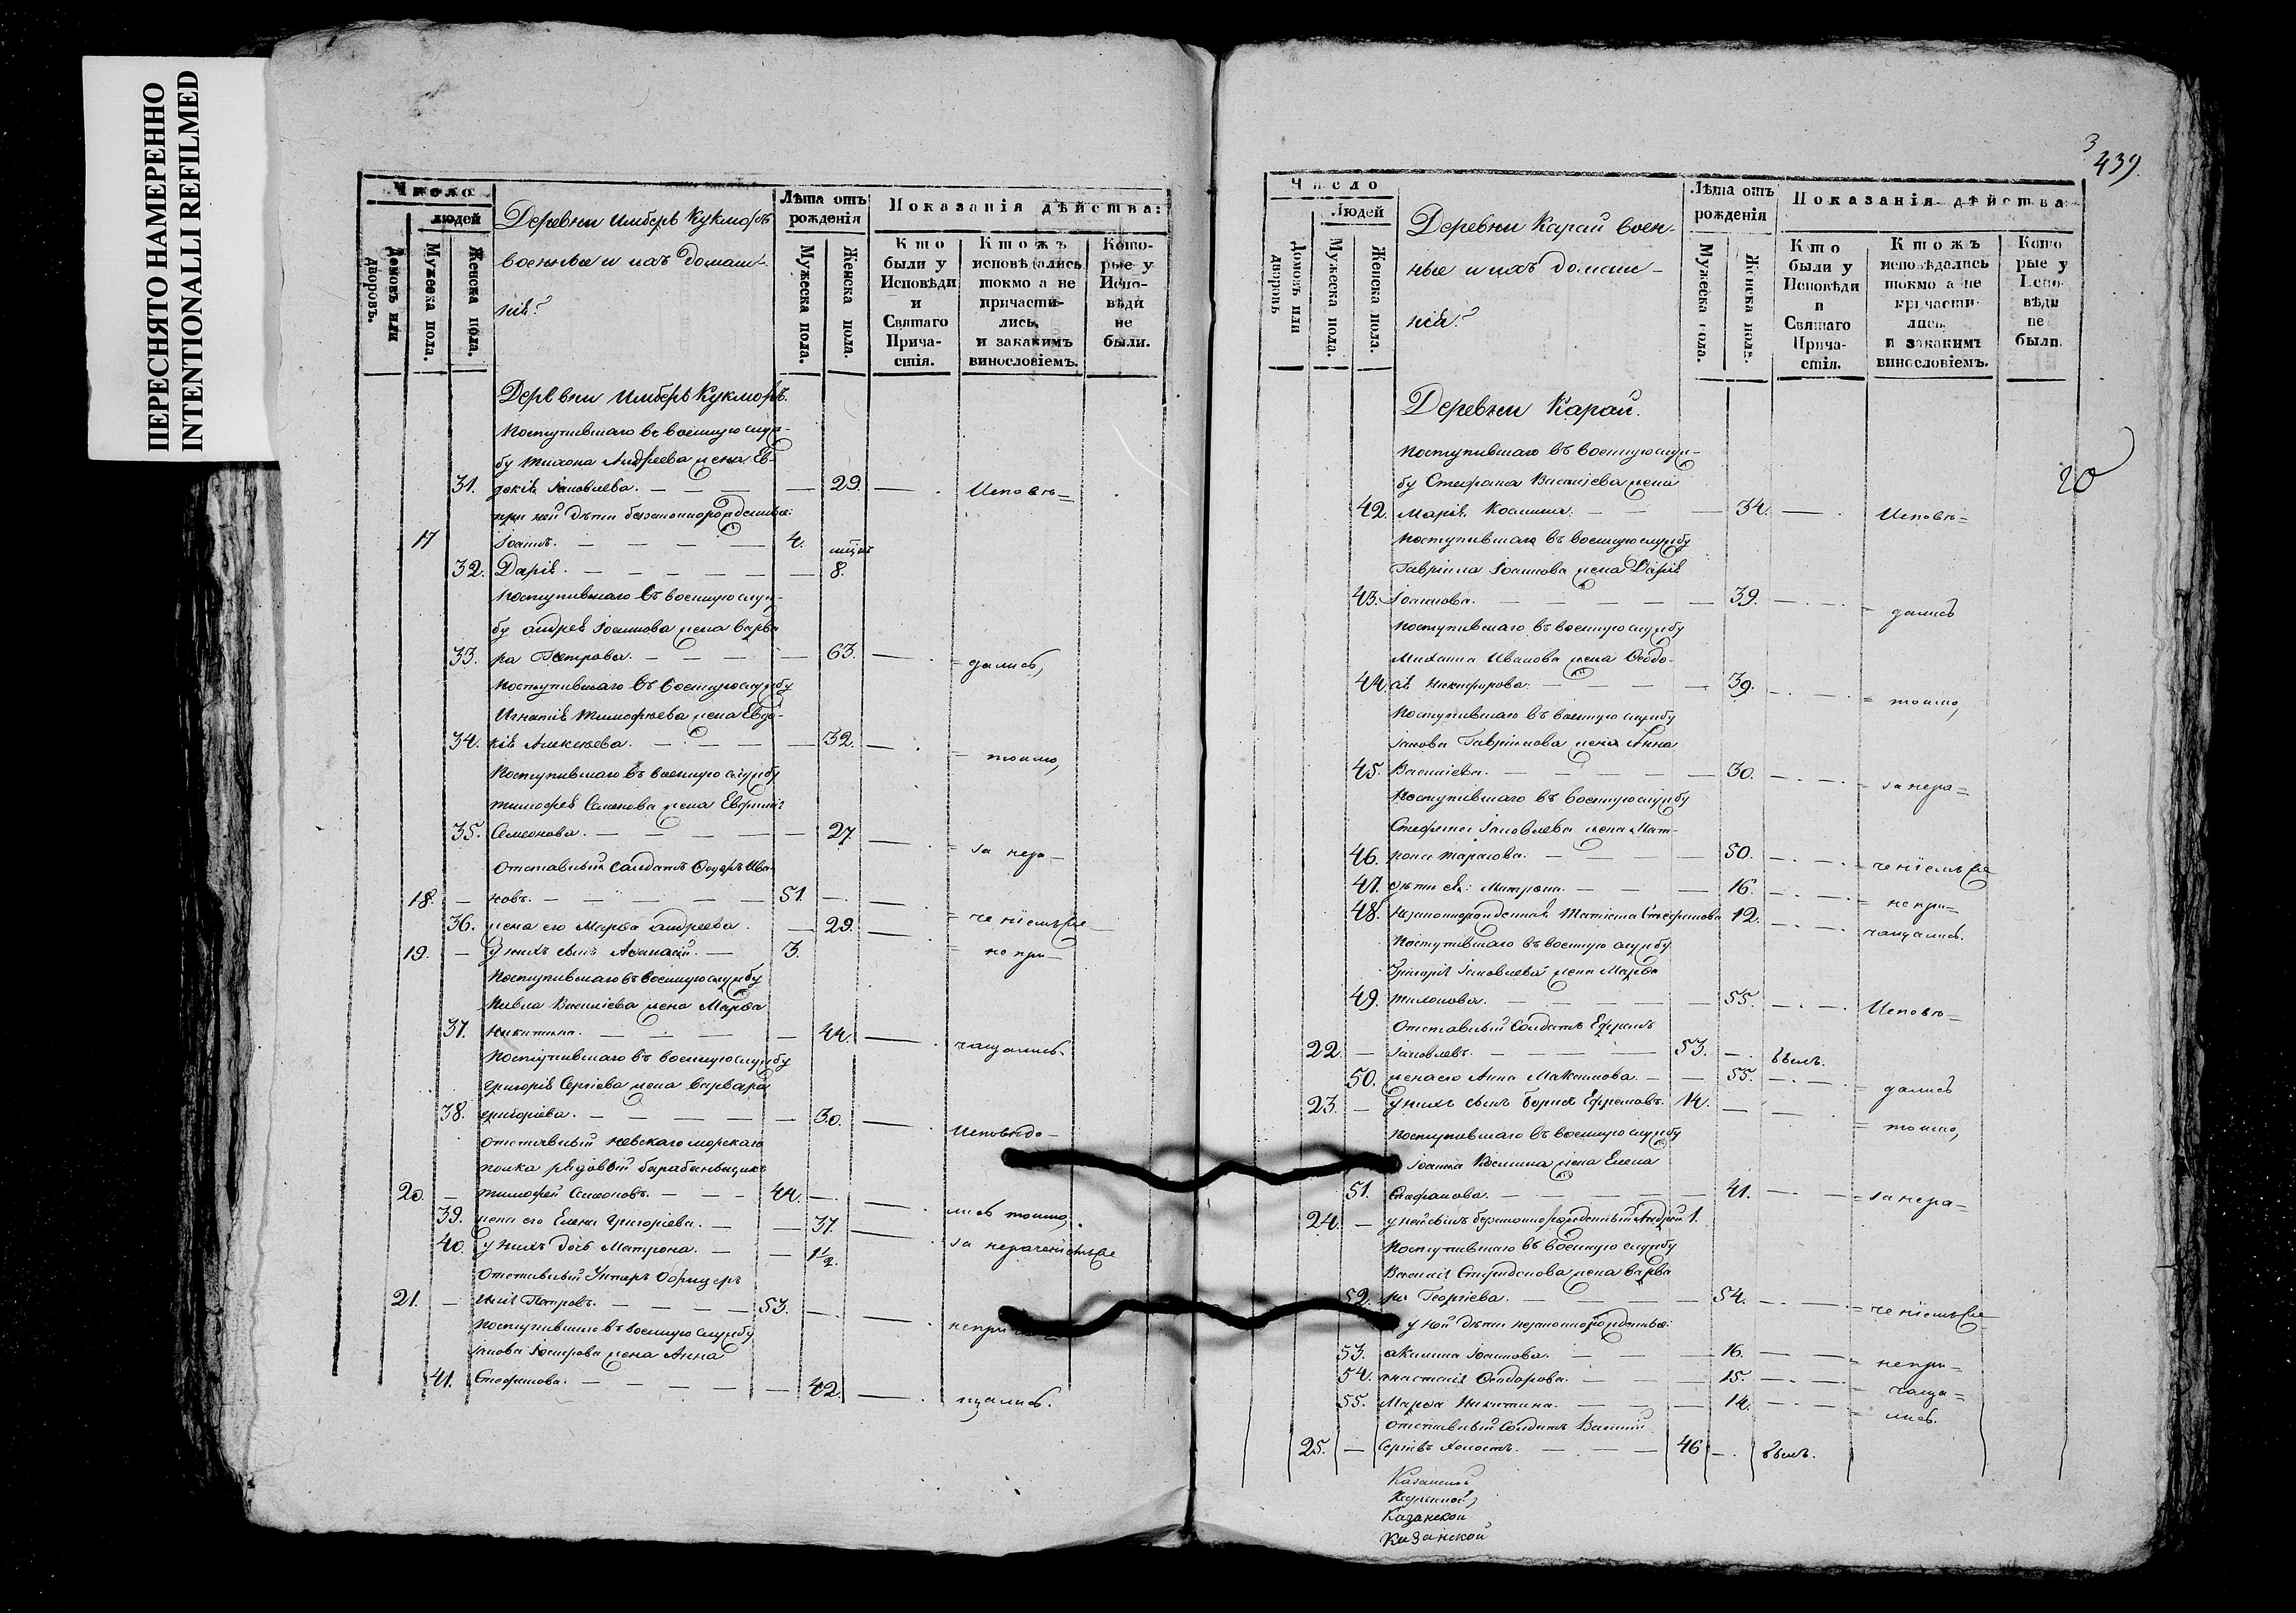 ПЕРЕСНЯТО НАМЕРЕННО
INTENTIONALLI REFILMED
Число
людей
Домовъ или дворовъ.
Мужеска пола.
Женска пола.
Деревни Имберь Кукморъ
военные и ихъ домаш-
ніѣ?
Лѣта отъ рожденія
Мужеска пола.
Женска пола.
Показанія дѣйства:
Кто были у Исповѣди и Святаго Прича-стія.
Ктожъ исповѣдались токмо а не причасти-лись, и закакимъ винословіемъ.
Кото-рые у Испо-вѣди не были.
Деревни Имберь Кукморъ.
Поступившаго въ военную служ-
бу Тихона Андреева жена Ев-
31. докіѣ Іаковлева. — — — — 29. — . Исповѣ=
при ней дѣти беззаконнорожденные:
17 Іоаннъ. — — — — — 4. мѣся
32. Дарiѣ. — — — — — — 8.
Поступившаго въ военную служ-
бу Андреѣ Іоаннова жена Варва
33. ра Петрова. — — — — 63. — . = дались,
Поступившаго въ военную службу
Игнатіѣ Тимофѣева жена Евдо-
34. кіѣ Алексѣева. — — — — 32. — . = токмо,
Поступившаго въ военную службу
Тимофеѣ Семенова жена Евфиміѣ
35. Семенова. — — — — — 27. — . = за нера-
Отставный Солдатъ Ѳеодоръ Ива-
18. — новъ. — — — — — 51. —
36. жена его Марѳа Андреева. — 29. — = ченіемъ же
19. — У нихъ сынъ Аѳанасій. — 3. = не при-
Поступившаго въ военную службу
Павла Василіева жена Марѳа
37. Никитина. — — — 44. — . чащались.
Поступившаго въ военную службу
Григоріѣ Сергіева жена Варвара
38. Григоріева. — — — — — 30. — . Исповѣда-
Отставный Невскаго морскаго
полка рядовый барабанщикъ
20. — Тимофей Семеновъ. — — — 44. —
39. жена его Елена Григоріева. — — 37. — . лись токмо,
40. У нихъ дочь Матрона. — — 1 1/2. за нераченіемъ же
Отставный Унтеръ Офицеръ
21. — Илія Петровъ. — — — — 53. —
Поступившаго въ военную службу неприча=
Іакова Іосифова жена Анна
41. Стефанова. — — — — — 42. — . щались.
3
439.
20
Число
Людей
Домовъ или дворовъ
Мужеска пола.
Женска пола.
Деревни Карай воен-
ные и ихъ домаш-
ніѣ?
Лѣта отъ рожденія
Мужеска пола.
Женска пола.
Показанія дѣйства
Кто были у Исповѣди и Святаго Прича-стія.
Ктожъ исповѣдались токмо а не причасти-лись, и закакимъ винословіемъ.
Кото рые у Испо-вѣди не были.
Деревни Карай.
Поступившаго въ военную служ-
бу Стефана Василіева жена
42. Маріѣ Космина. — — — 34. — . Исповѣ=
Поступившаго въ военную службу
Гавріила Іоаннова жена Даріѣ
43. Іоаннова. — — — — — 39. — . — = дались
Поступившаго въ военную службу
Михаила Иванова жена Ѳеодо-
44. сіѣ Никифорова. — — — — 39. — . — = токмо,
Поступившаго въ военную службу
Іакова Гавріилова жена Анна
45. Василіева. — — — — — 30. — . — = за нера=
Поступившаго въ военную службу
Стефана Іаковлева жена Мат-
46. рона Тарасова. — — — — 50. — . — = ченіемъ же
47. дѣти еѣ: Матрона. — — — 16. — . — = непри=
48. Незаконнорожденнаѣ Татіана Стефанова 12. — . — чащались.
Поступившаго въ военную службу
Григоріѣ Іаковлева жена Марѳа
49. Тихонова. — — — — — 55. — . — Исповѣ=
Отставный Солдатъ Ефремъ
22. — Іаковлевъ. — — — — 53. — . былъ.
50. жена его Анна Максимова. — — 55. — . — = дались
23. — У нихъ сынъ Борисъ Ефремовъ. 14. — — = токмо,
Поступившаго въ военную службу
Іоанна Космина жена Елена
51. Стефанова. — — — — — 41. — — = за нера=
24. — у ней сынъ беззаконнорожденный Андрей 1.
Поступившаго въ военную службу
Василіѣ Спиридонова жена Варва
52. ра Георгіева. — — — — 54. — . — = ченіемъ же
у ней дѣти незаконнорожденные:
53. Акилина Іоаннова. — — — 16. — — = непри=
54. Анастасіѣ Ѳеодорова. — — — 15. — . — = чаща=
55. Марѳа Никитина. — — — 14. — . — = лись.
Отставный Солдатъ Василій
25. — Сергіевъ холостъ. — — — 46 — . былъ.
Казанской
Казанской
Казанской